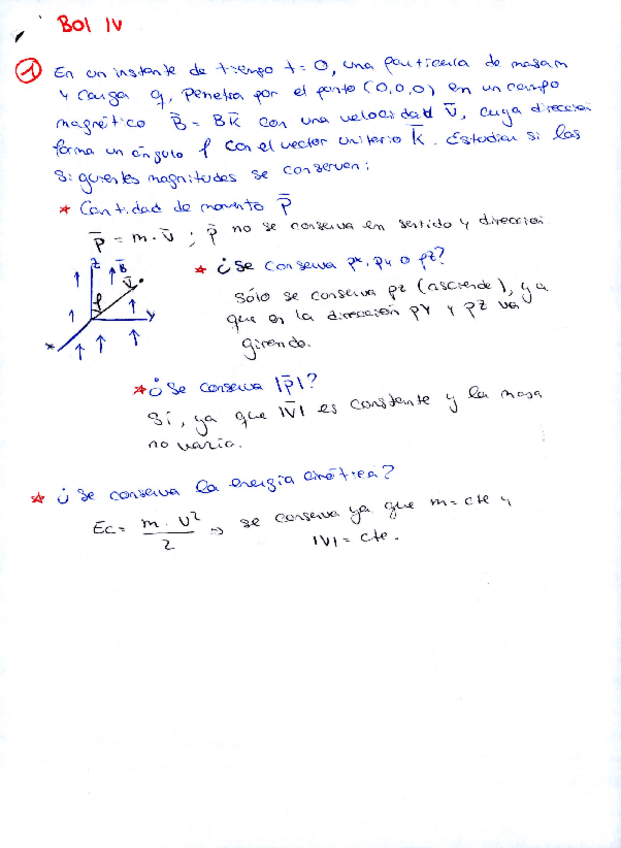 Bol IV
① En un instante de tiempo t = 0, una partícula de masa m
y carga q, penetra por el punto (0,0,0) en un campo
magnético B̄ = Bk̄ con una velocidad v̄, cuya dirección
forma un ángulo φ con el vector unitario k̄. Estudien si las
siguientes magnitudes se conserven:
* Cantidad de momento p̄
p̄ = m · v̄ ; p̄ no se conserva en sentido y dirección
z B̄
v̄
φ
y
x
* ¿Se conserva px, py o pz?
Sólo se conserva pz (asciende), ya
que en la dirección pY y pZ va
girando.
* ¿Se conserva |p̄|?
Sí, ya que |v̄| es constante y la masa
no varía.
* ¿Se conserva la energía cinética?
Ec = m · v² / 2 → se conserva ya que m = cte y
|v| = cte.